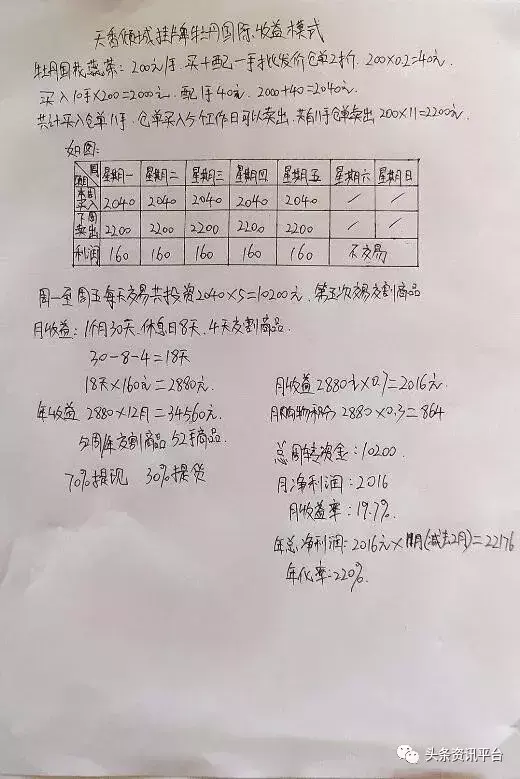 天香倾城挂牌牡丹国际.收益模式
牡丹国花蕊茶：200元/手．买十配一手批发价仓单2折．200×0.2=40元．
买入10手×200=2000元．配1手40元．2000+40=2040元．
共计买入仓单11手．仓单买入5个工作日可以卖出．共有11手仓单卖出200×11=2200元．
如图：
项目 周 星期一 星期二 星期三 星期四 星期五 星期六 星期日
本周买入 2040 2040 2040 2040 2040 / /
下周卖出 2200 2200 2200 2200 2200 / /
利润 160 160 160 160 160 不交易
周一至周五每天交易共投资2040×5=10200元．第五次交易交割商品
月收益：1个月30天．休息日8天．4天交割商品．
30-8-4=18天
18天×160元=2880元．
年收益 2880×12月=34560元．
5周年交割商品52手商品．
70%提现 30%提货
月收益2880元×0.7=2016元．
月购物积分 2880×0.3=864
总周转资金：10200．
月净利润：2016
月收益率：19.7%．
年总净利润：2016元×11月(减去2月)=22176
年化率：220%．
头条资讯平台